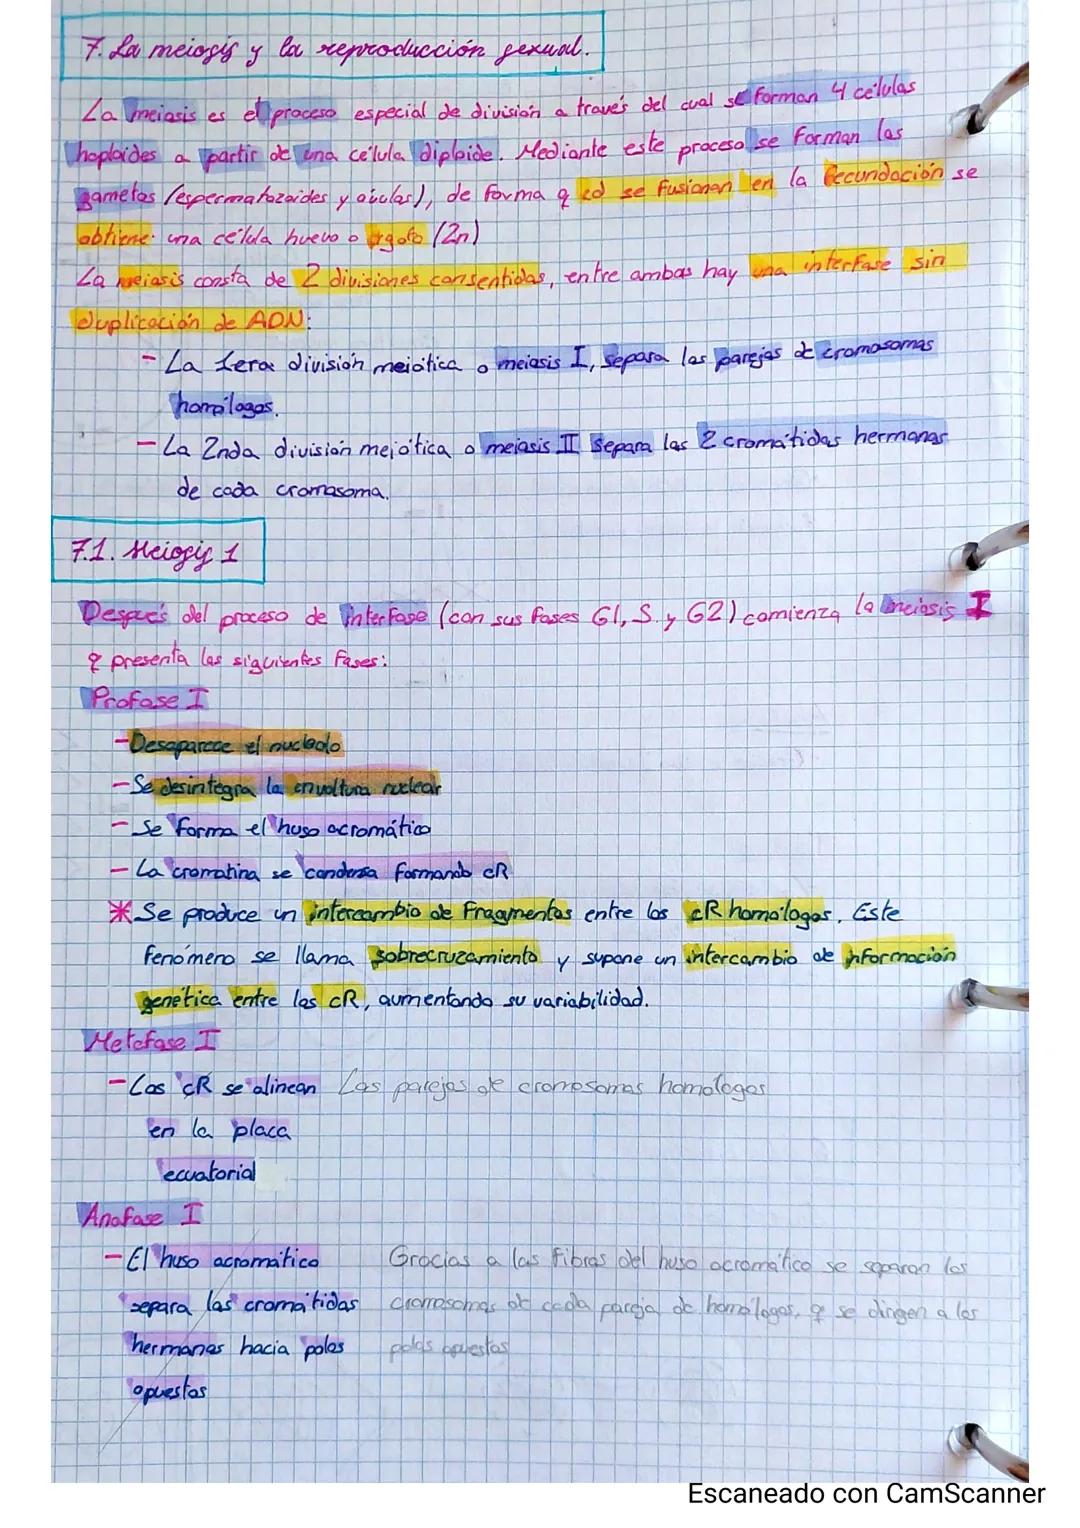 7. La meiosis y la reproducción sexual.
La meiosis es el proceso especial de división a través del cual se forman 4 células
haploides a partir de una célula diploide. Mediante este proceso se forman los
gametos (espermatozoides y óvulos), de forma q cd se fusionan en la fecundación se
obtiene: una célula huevo o zigoto (2n)
La meiosis consta de 2 divisiones consentidas, entre ambas hay una interfase sin
duplicación de ADN:
- La 1era división meiótica o meiosis I, separa las parejas de cromosomas
homólogos.
- La 2nda división meiótica o meiosis II separa las 2 cromátidas hermanas
de cada cromosoma.
7.1. Meiosis 1
Después del proceso de interfase (con sus fases G1, S y G2) comienza la meiosis I
q presenta las siguientes fases:
Profase I
- Desaparece el nucleolo
- Se desintegra la envoltura nuclear
- Se forma el huso acromático
- La cromatina se condensa formando cR
* Se produce un intercambio de fragmentos entre los cR homólogos. Este
fenómeno se llama sobrecruzamiento y supone un intercambio de información
genética entre los cR, aumentando su variabilidad.
Metafase I
- Los cR se alinean Las parejas de cromosomas homologos
en la placa
ecuatorial
Anafase I
- El huso acromático Gracias a las fibras del huso acromático se separan los
separa las cromátidas cromosomas de cada pareja de homólogos, q se dirigen a los
hermanas hacia polos polos opuestos
opuestos
Escaneado con CamScanner